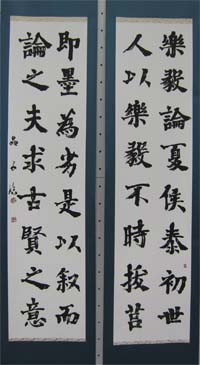 樂毅論夏侯泰初世
人以樂毅不時拔莒
即墨為劣是以叙而
論之夫求古賢之意